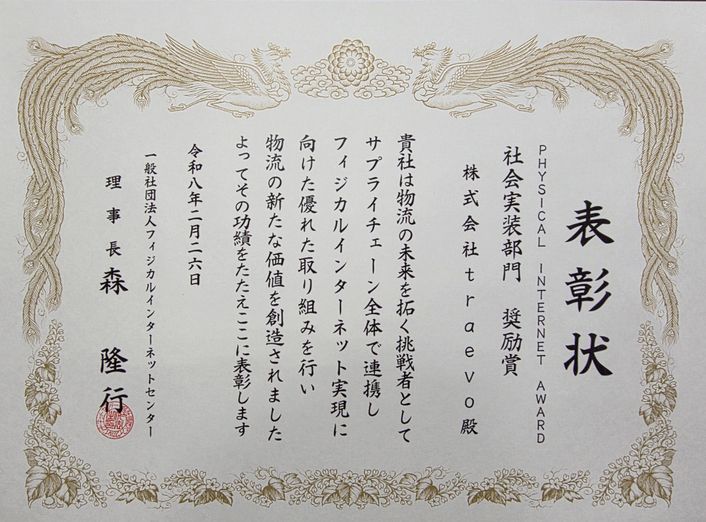 表彰状
PHYSICAL INTERNET AWARD
社会実装部門　奨励賞
株式会社traevo殿
貴社は物流の未来を拓く挑戦者として
サプライチェーン全体で連携し
フィジカルインターネット実現に
向けた優れた取り組みを行い
物流の新たな価値を創造されました
よってその功績をたたえここに表彰します
令和八年二月二六日
一般社団法人フィジカルインターネットセンター
理事長　森　隆行